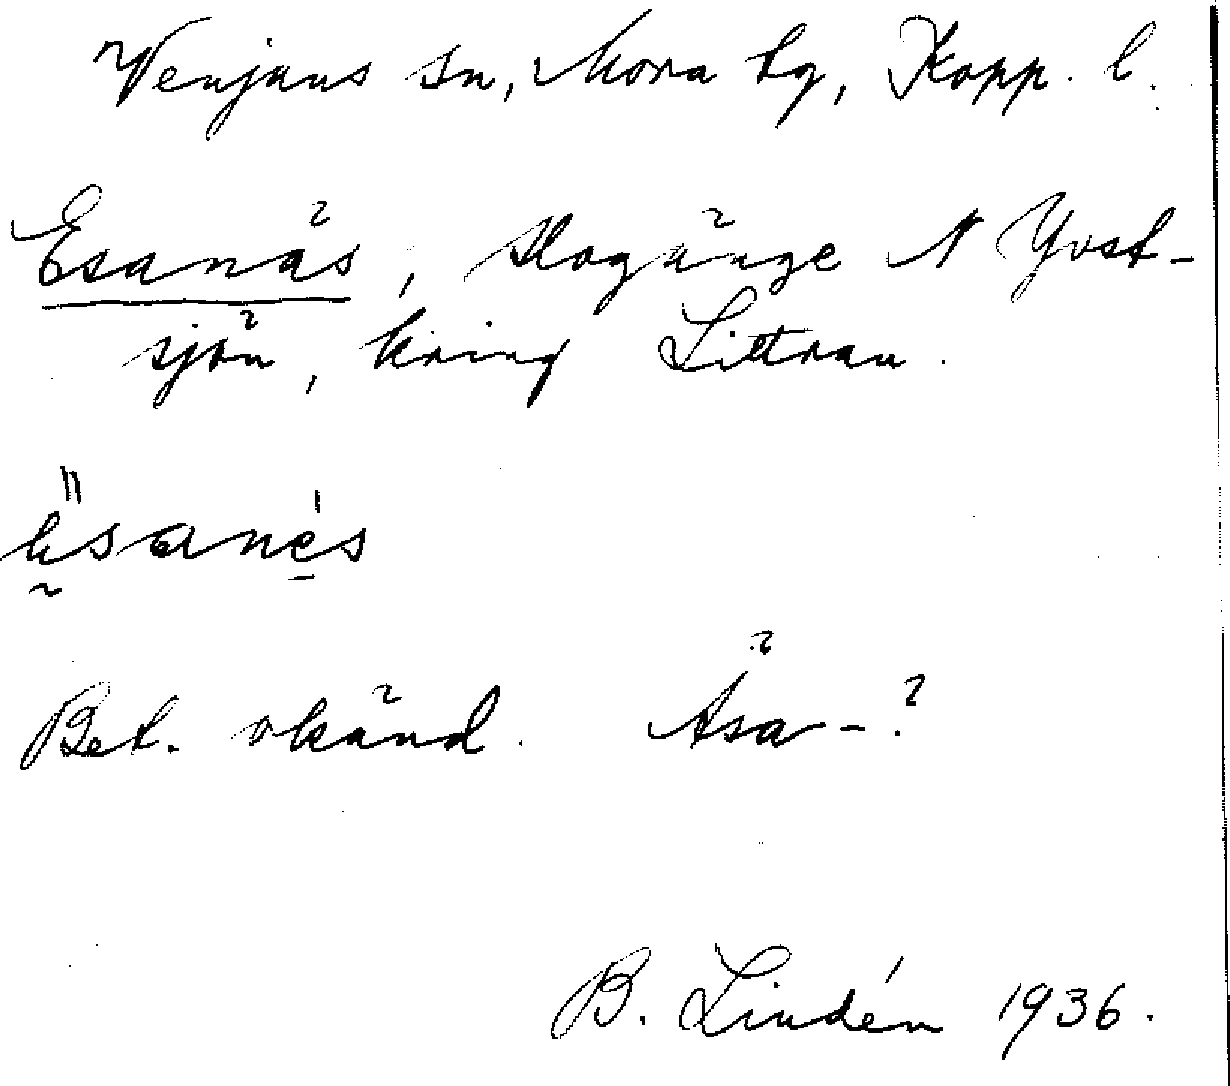 Venjans sn, Mora tg, Kopp. l.
Esanäs, slogänge N Yvst-
sjön, kring Littran.
Bet. okänd. Äsa-?
B. Lindén 1936.